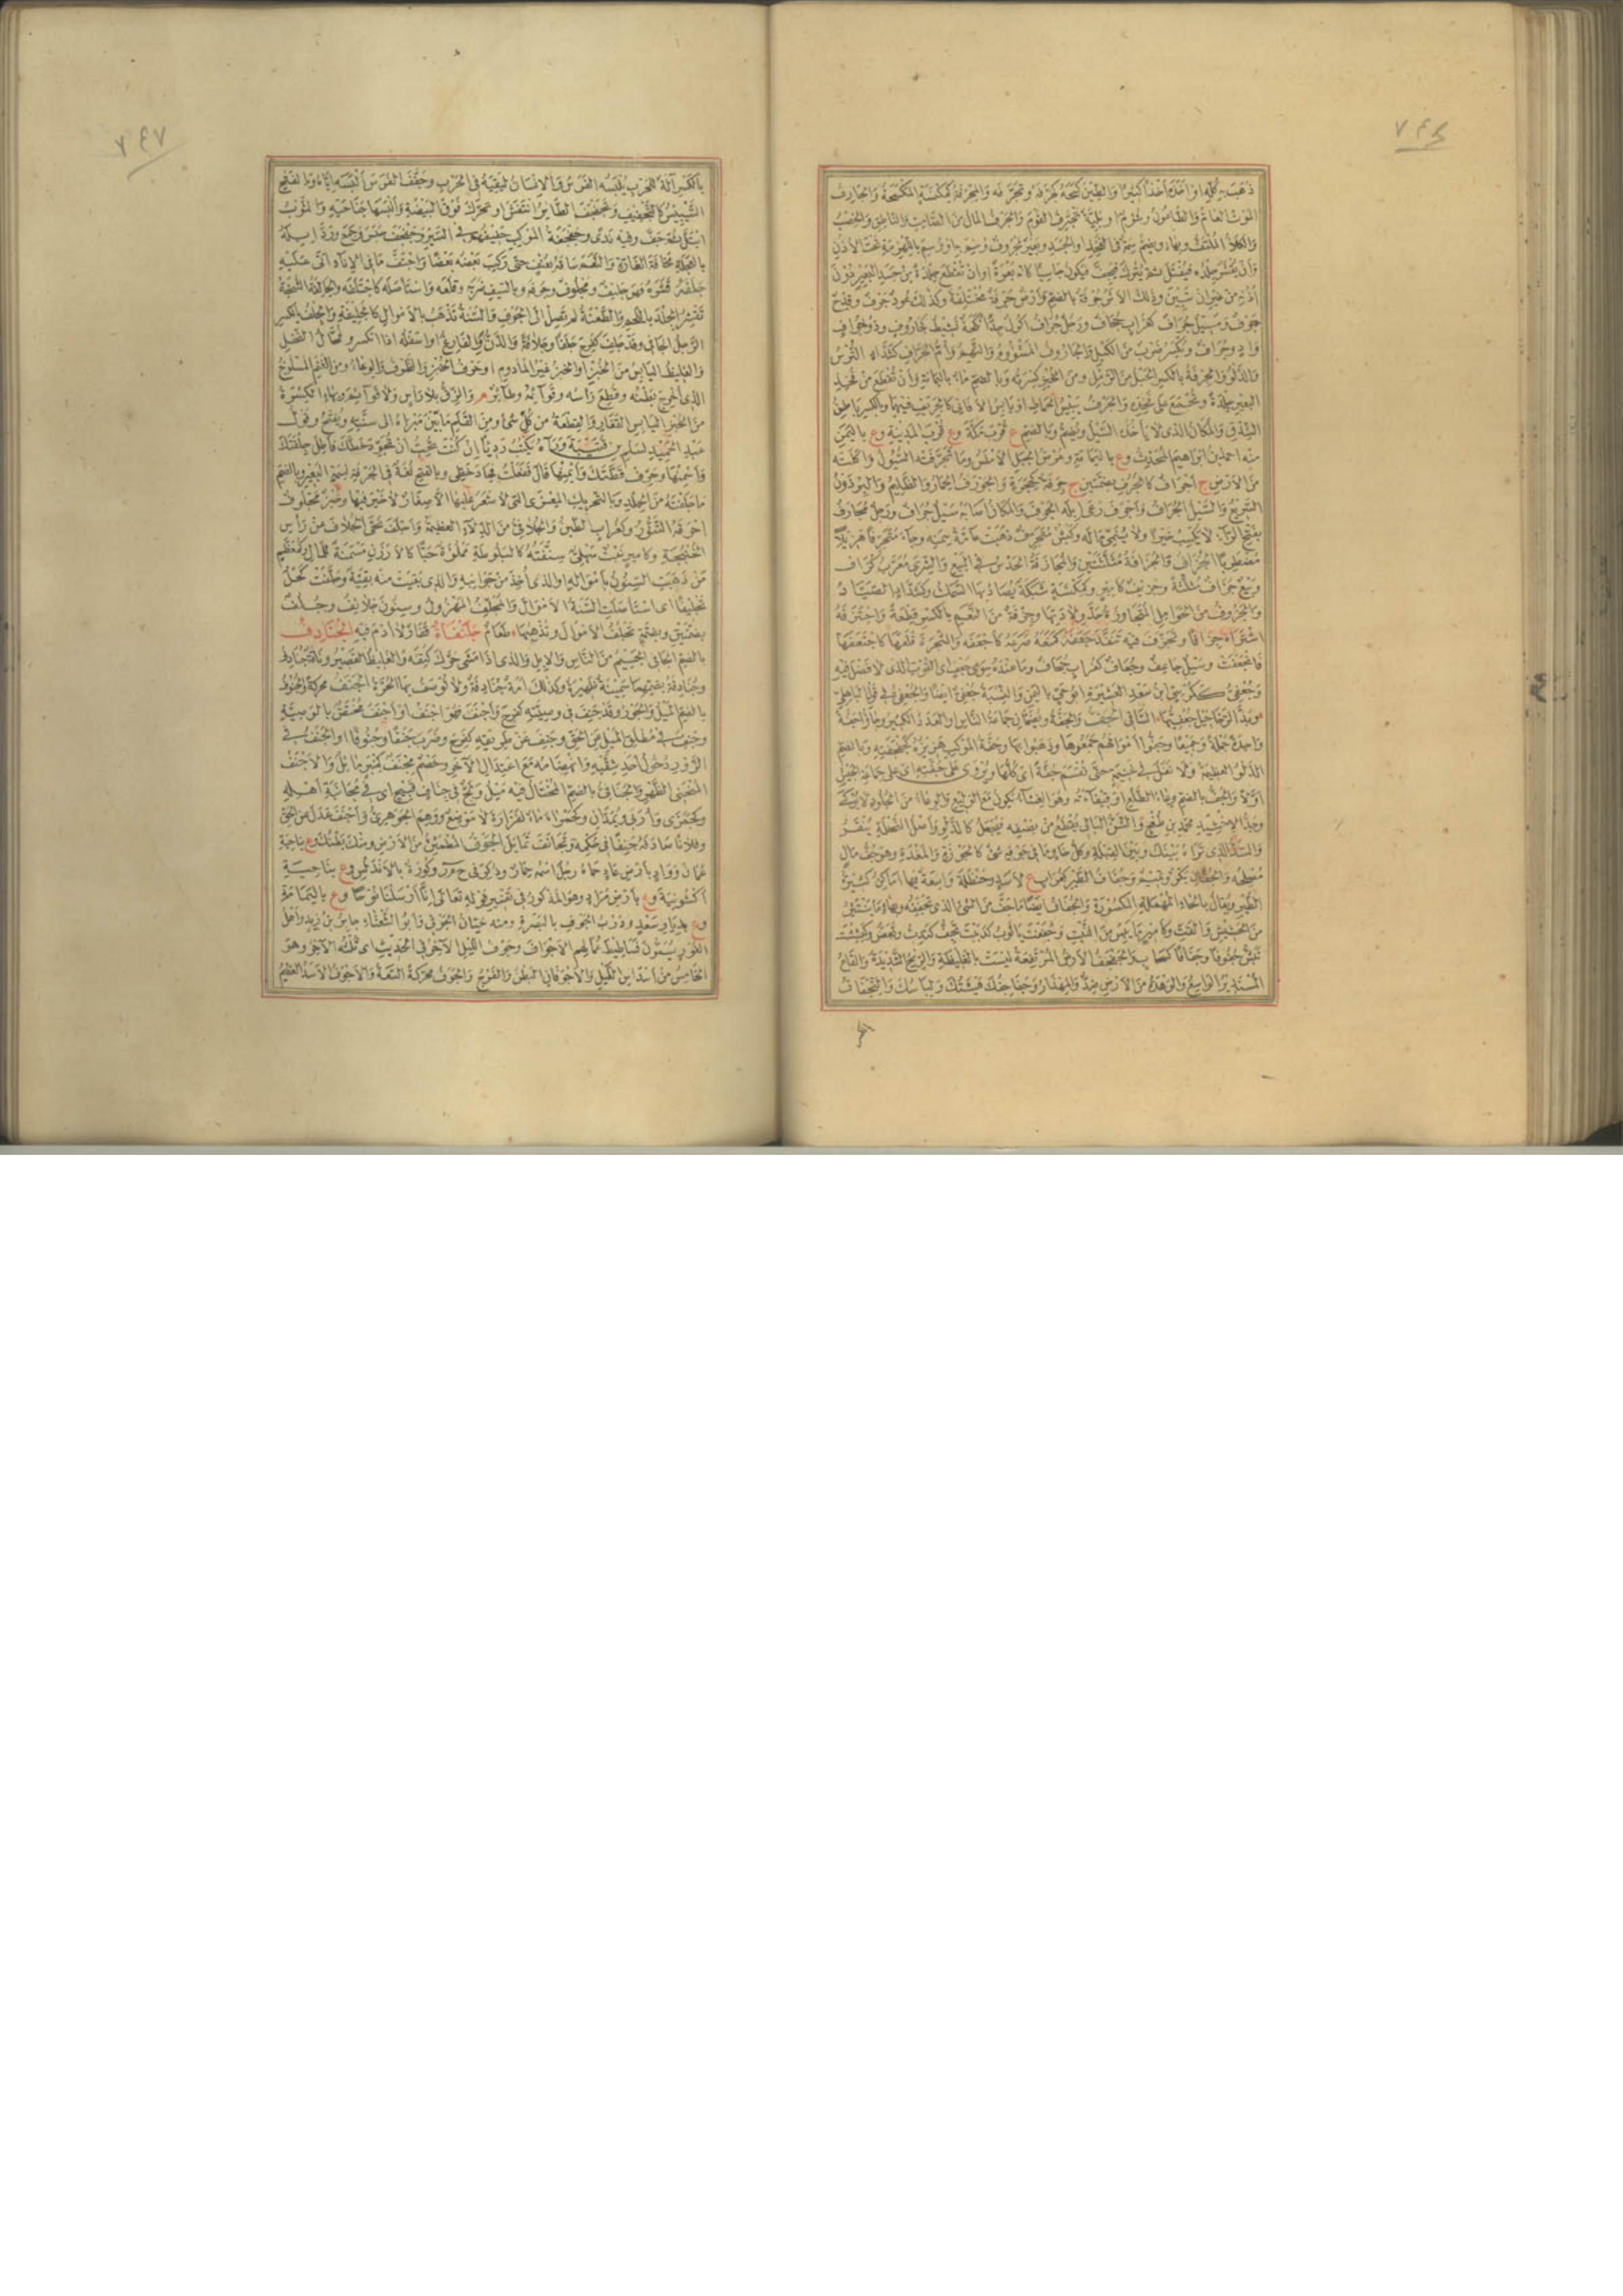 ٧٤٦
ذهب به كله او اخذه اخذا كثيرا والطين كسحه كجرفه وتجرفه والمجرفة كمكنسة المكسحة والجارف
الموت العام والطاعون وشؤم او بلية تجترف القوم والجرف المال من الصامت والناطق والخصب
والكلأ الملتف
وان يقشر جلده فيفتل ثم يترك فيجف فيكون جاسيا كانه بعرة او ان تقطع جلدة من جسد البعير دون
اذنه من غير ان تبين وذلك الاثر جرفة بالضم وارض جرفة مختلفة وكذلك عود جرف وقدح
جرف وسيل جراف كغراب جحاف ورجل جراف اكول جدا نكحة نشيط كجاروف
وجراف ويكسر ضرب من الكيل والجاروف المشؤوم والنهم وام الجراف كشداد الترس
والدلو والجرفة بالكسر الحبل من الرمل ومن الخبز كسرته وبالضم ماء باليمامة وان تقطع من فخذ
البعير جلدة وتجمع على فخذه والجرف يبيس الحماط او يابس الافاني كالجريف فيهما وبالكسر باطن
الشدق والمكان الذى لا ياخذه السيل ويضم وبالضم ع قرب مكة وع قرب المدينة وع باليمن
منه احمد بن ابراهيم المحدث وع باليمامة وعرض الجبل الاملس وما تجرفته السيول واكلته
من الارض ج اجراف كالجرف بضمتين ج جرفة كجحرة والجورف الحمار والظليم والبرذون
السريع والسيل الجراف واجرف رعى ابله الجرف والمكان اصابه سيل جراف ورجل مجارف
بفتح الراء لا يكسب خيرا ولا ينمي ماله وكبش متجرف ذهبت عامة سمنه وجاء متجرفا هزيلا
مضطربا الجزاف والجزافة مثلثتين والمجازفة الحدس فى البيع والشرى معرب كزاف
وبيع جزاف مثلثة وجزيف كامير وكمكنسة شبكة يصاد بها السمك وكشداد الصياد
والجزوف من الحوامل المتجاوزة حد ولادتها وجزفة من النعم بالكسر قطعة واجتزفه
اشتراه جزافا وتجزف فيه تنفذ جعفه كمنعه صرعه كاجعفه والشجرة قلعها كاجتعفها
فانجعفت وسيل جاعف وجعاف كغراب جحاف وما عنده سوى جعف اى القوت الذى لا فضل فيه
وجعفى ككرسى ابن سعد العشيرة ابو حى باليمن والنسبة جعفى ايضا والجعفى فى قول الباهلى
وبذ الرخاخيل جعفيها الساقى الجف والجفة ويضمان جماعة الناس والعدد الكبير وجاؤا جفة
واحدة جملة وجميعا وجفوا اموالهم جمعوها وذهبوا بها وجفة الموكب هزيزه كجفجفته وبالضم
الدلو العظيمة ولا نفل فى غنيمة حتى تقسم جفة اى كلها ويروى على جفته اى على جماعة الجيش
اولا والجف بالضم وعاء الطلع او قيقاءته وهو الغشاء يكون مع الوليع والوعاء من الجلود لا يوكى
وجد الاخشيد محمد بن طغج والشن البالى يقطع من نصفه فيجعل كالدلو واصل النخلة ينقر
والسد الذى تراه بينك وبين القبلة وكل خاو ما فى جوفه شئ كالجوزة والمغدة وهو جف مال
مصلحه والجفان بكر وتميم وجفاف الطير كغراب ع لاسد وحنظلة واسعة فيها اماكن كثيرة
الطير ويقال بالحاء المهملة المكسورة والجفاف ايضا ما جف من الشئ الذى تجففه وبهاء ما ينتثر
من الحشيش والقت وكامير ما يبس من النبت وجففت يا ثوب كدببت تجف كتدب وتعض وكبششت
تبش جفوفا وجفافا كسحاب والجفجف الارض المرتفعة ليست بالغليظة والريح الشديدة والقاع
المستدير الواسع والوهدة من الارض ضد والمهذار وجفاجفك هيئتك ولباسك والتجفاف
٧٤٧
بالكسر آلة للحرب يلبسه الفرس والانسان ليقيه فى الحرب وجفف الفرس البسه اياه وبالفتح
التيبيس كالتجفيف وتجفجف الطائر انتفش او تحرك فوق البيضة والبسها جناحيه والثوب
ابتل ثم جف وفيه ندى وجفجفة الموكب حفيفهم فى السير وجفجف حبس وجمع ورد ابله
بالعجلة مخافة الغارة والنعم ساقه بعنف حتى ركب بعضه بعضا واجتف ما فى الاناء اتى عليه
جلفه قشره فهو جليف ومجلوف وجرفه وبالسيف ضربه وقلعه واستاصله كاجتلفه والجالفة الشجة
تقشر الجلد باللحم والطعنة لم تصل الى الجوف والسنة تذهب بالاموال كالجليفة والجلف بالكسر
الرجل الجافى وقد جلف كفرح جلفا وجلافة والدن او الفارغ او اسفله اذا انكسر وفحال النخل
والغليظ اليابس من الخبز او الخبز غير المادوم او حرف الخبز والظرف والوعاء ومن الغنم المسلوخ
الذى اخرج بطنه وقطع راسه وقوائمه وطائر م والزق بلا راس ولا قوائم وبهاء الكسرة
من الخبز اليابس القفار والقطعة من كل شئ ومن القلم ما بين مبراه الى سنته ويفتح وقول
عبد الحميد لسلم بن قتيبة ورآه يكتب رديا ان كنت تحب ان تجود خطك فاطل جلفتك
واسمنها وحرف قطتك وايمنها قال ففعلت فجاد خطى وبالفتح لغة فى الجرفة لسمة البعير وبالضم
ما جلفته من الجلد وبالتحريك المعزى التى لا شعر عليها الا صغار لا خير فيها وخبز مجلوف
احرقه التنور وكغراب الطين والجلافى من الدلاء العظيمة واجلف نحى الجلاف من راس
الخنبجة وكامير نبت سهلى سنفته كالبلوطة مملوة حبا كالارزن مسمنة للمال وكمعظم
من ذهبت السنون بامواله والذى اخذ من جوانبه والذى بقيت منه بقية وجلفت كحل
تجليفا اى استاصلت السنة الاموال والمجلف المهزول وسنون جلائف وجلف
بضمتين وبضمة تجلف الاموال وتذهبها طعام جلنفاة قفار لا ادم فيه الجنادف
بالضم الجافى الجسيم من الناس والابل والذى اذا مشى حرك كتفيه والغليظ القصير وناقة جنادف
وجنادفة بضمهما سمينة ظهيرة وكذلك امة جنادفة ولا توصف بها الحرة الجنف محركة والجنوف
بالضم الميل والجور وقد جنف فى وصيته كفرح واجنف فهو اجنف او اجنف مختص بالوصية
وجنف فى مطلق الميل عن الحق وجنف عن طريقه كفرح وضرب جنفا وجنوفا او الجنف فى
الزور دخول احد شقيه وانهضامه مع اعتدال الآخر وخصم مجنف كمنبر مائل والاجنف
المنحنى الظهر والجنافى بالضم المختال فيه ميل ولج فى جناف قبيح اى فى مجانبة اهله
وكجمزى واربى ويمدان وكحمراء ماء لفزارة لا موضع ووهم الجوهرى واجنف عدل عن الحق
وفلانا صادفه جنفا فى حكمه وتجانف تمايل الجوف المطمئن من الارض ومنك بطنك وع بناحية
عمان وواد بارض عاد حماه رجل اسمه حمار وذكر فى ح م ر وكورة بالاندلس وع بناحية
اكشونية وع بارض مراد وهو المذكور فى تفسير قوله تعالى انا ارسلنا نوحا وع باليمامة
وع بديار سعد ودرب الجوف بالبصرة ومنه حيان الجوفى وابو الشعثاء جابر بن زيد واهل
الغور يسمون فساطيط عمالهم الاجواف وجوف الليل الآخر فى الحديث اى ثلثه الآخر وهو
الخامس من اسداس الليل والاجوفان البطن والفرج والجوف محركة السعة والاجوف الاسد العظيم